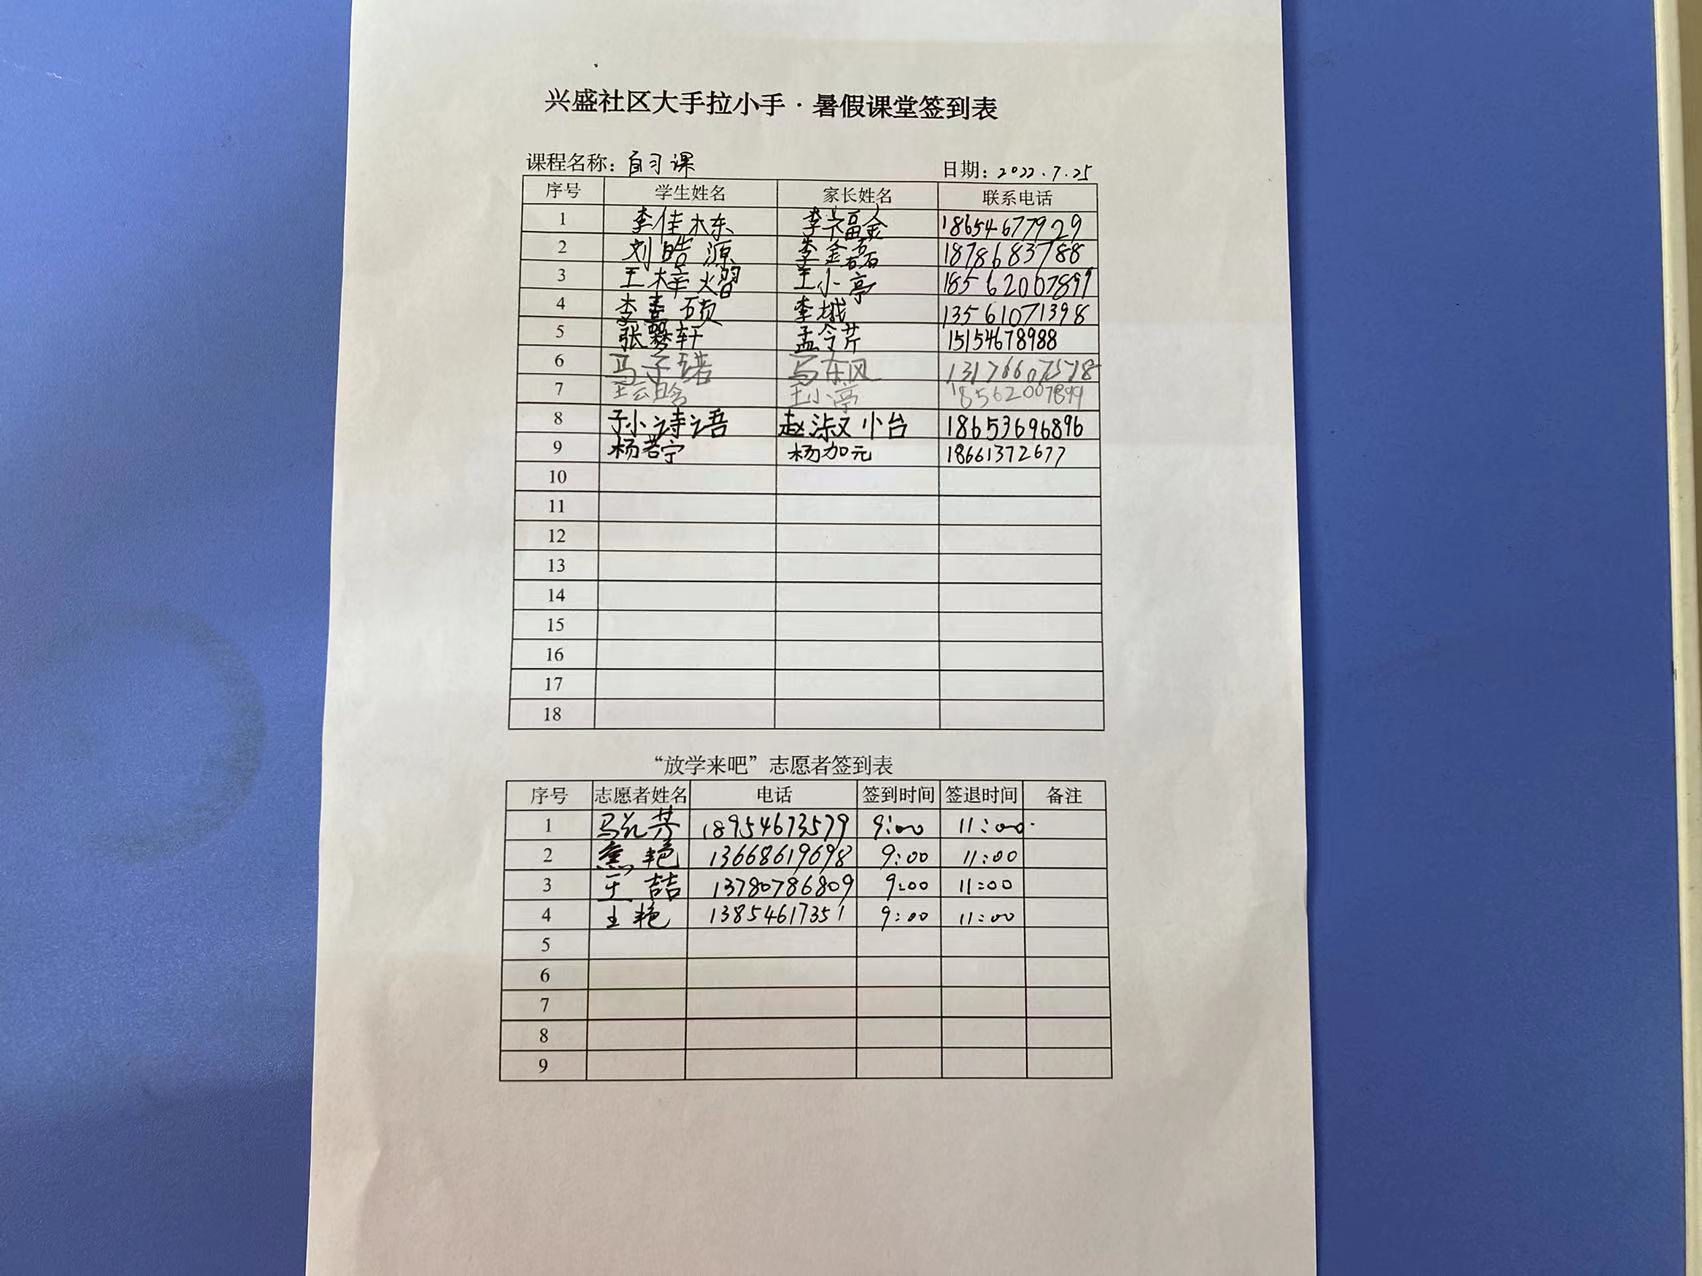 兴盛社区大手拉小手·暑假课堂签到表
课程名称：自习课 日期：2022.7.25
序号 学生姓名 家长姓名 联系电话
1 李佳栋 李福金 18654677929
2 刘皓源 李金磊 1878683788
3 王梓熠 王小亭 18562007899
4 李嘉硕 李城 13561071398
5 张馨轩 孟令芹 15154678988
6 马子诺 马东风 13176607578
7 王云晗 王小亭 18562007899
8 孙诗语 赵淑怡 18653696896
9 杨若宁 杨加元 18661372677
10
11
12
13
14
15
16
17
18
“放学来吧”志愿者签到表
序号 志愿者姓名 电话 签到时间 签退时间 备注
1 马花芳 18954673579 9:00 11:00
2 焦艳 13668619698 9:00 11:00
3 王喆 13780786809 9:00 11:00
4 王艳 13854617351 9:00 11:00
5
6
7
8
9